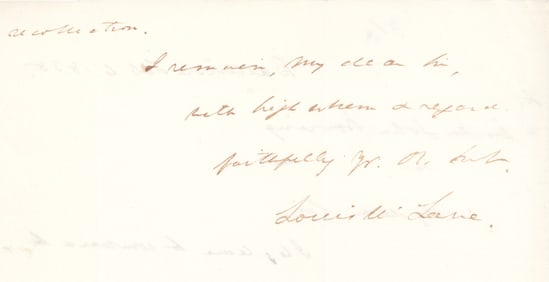 recollection.
I remain, my dear sir,
with high esteem & regard
faithfully yr. Ob. Svt.
Louis McLane.